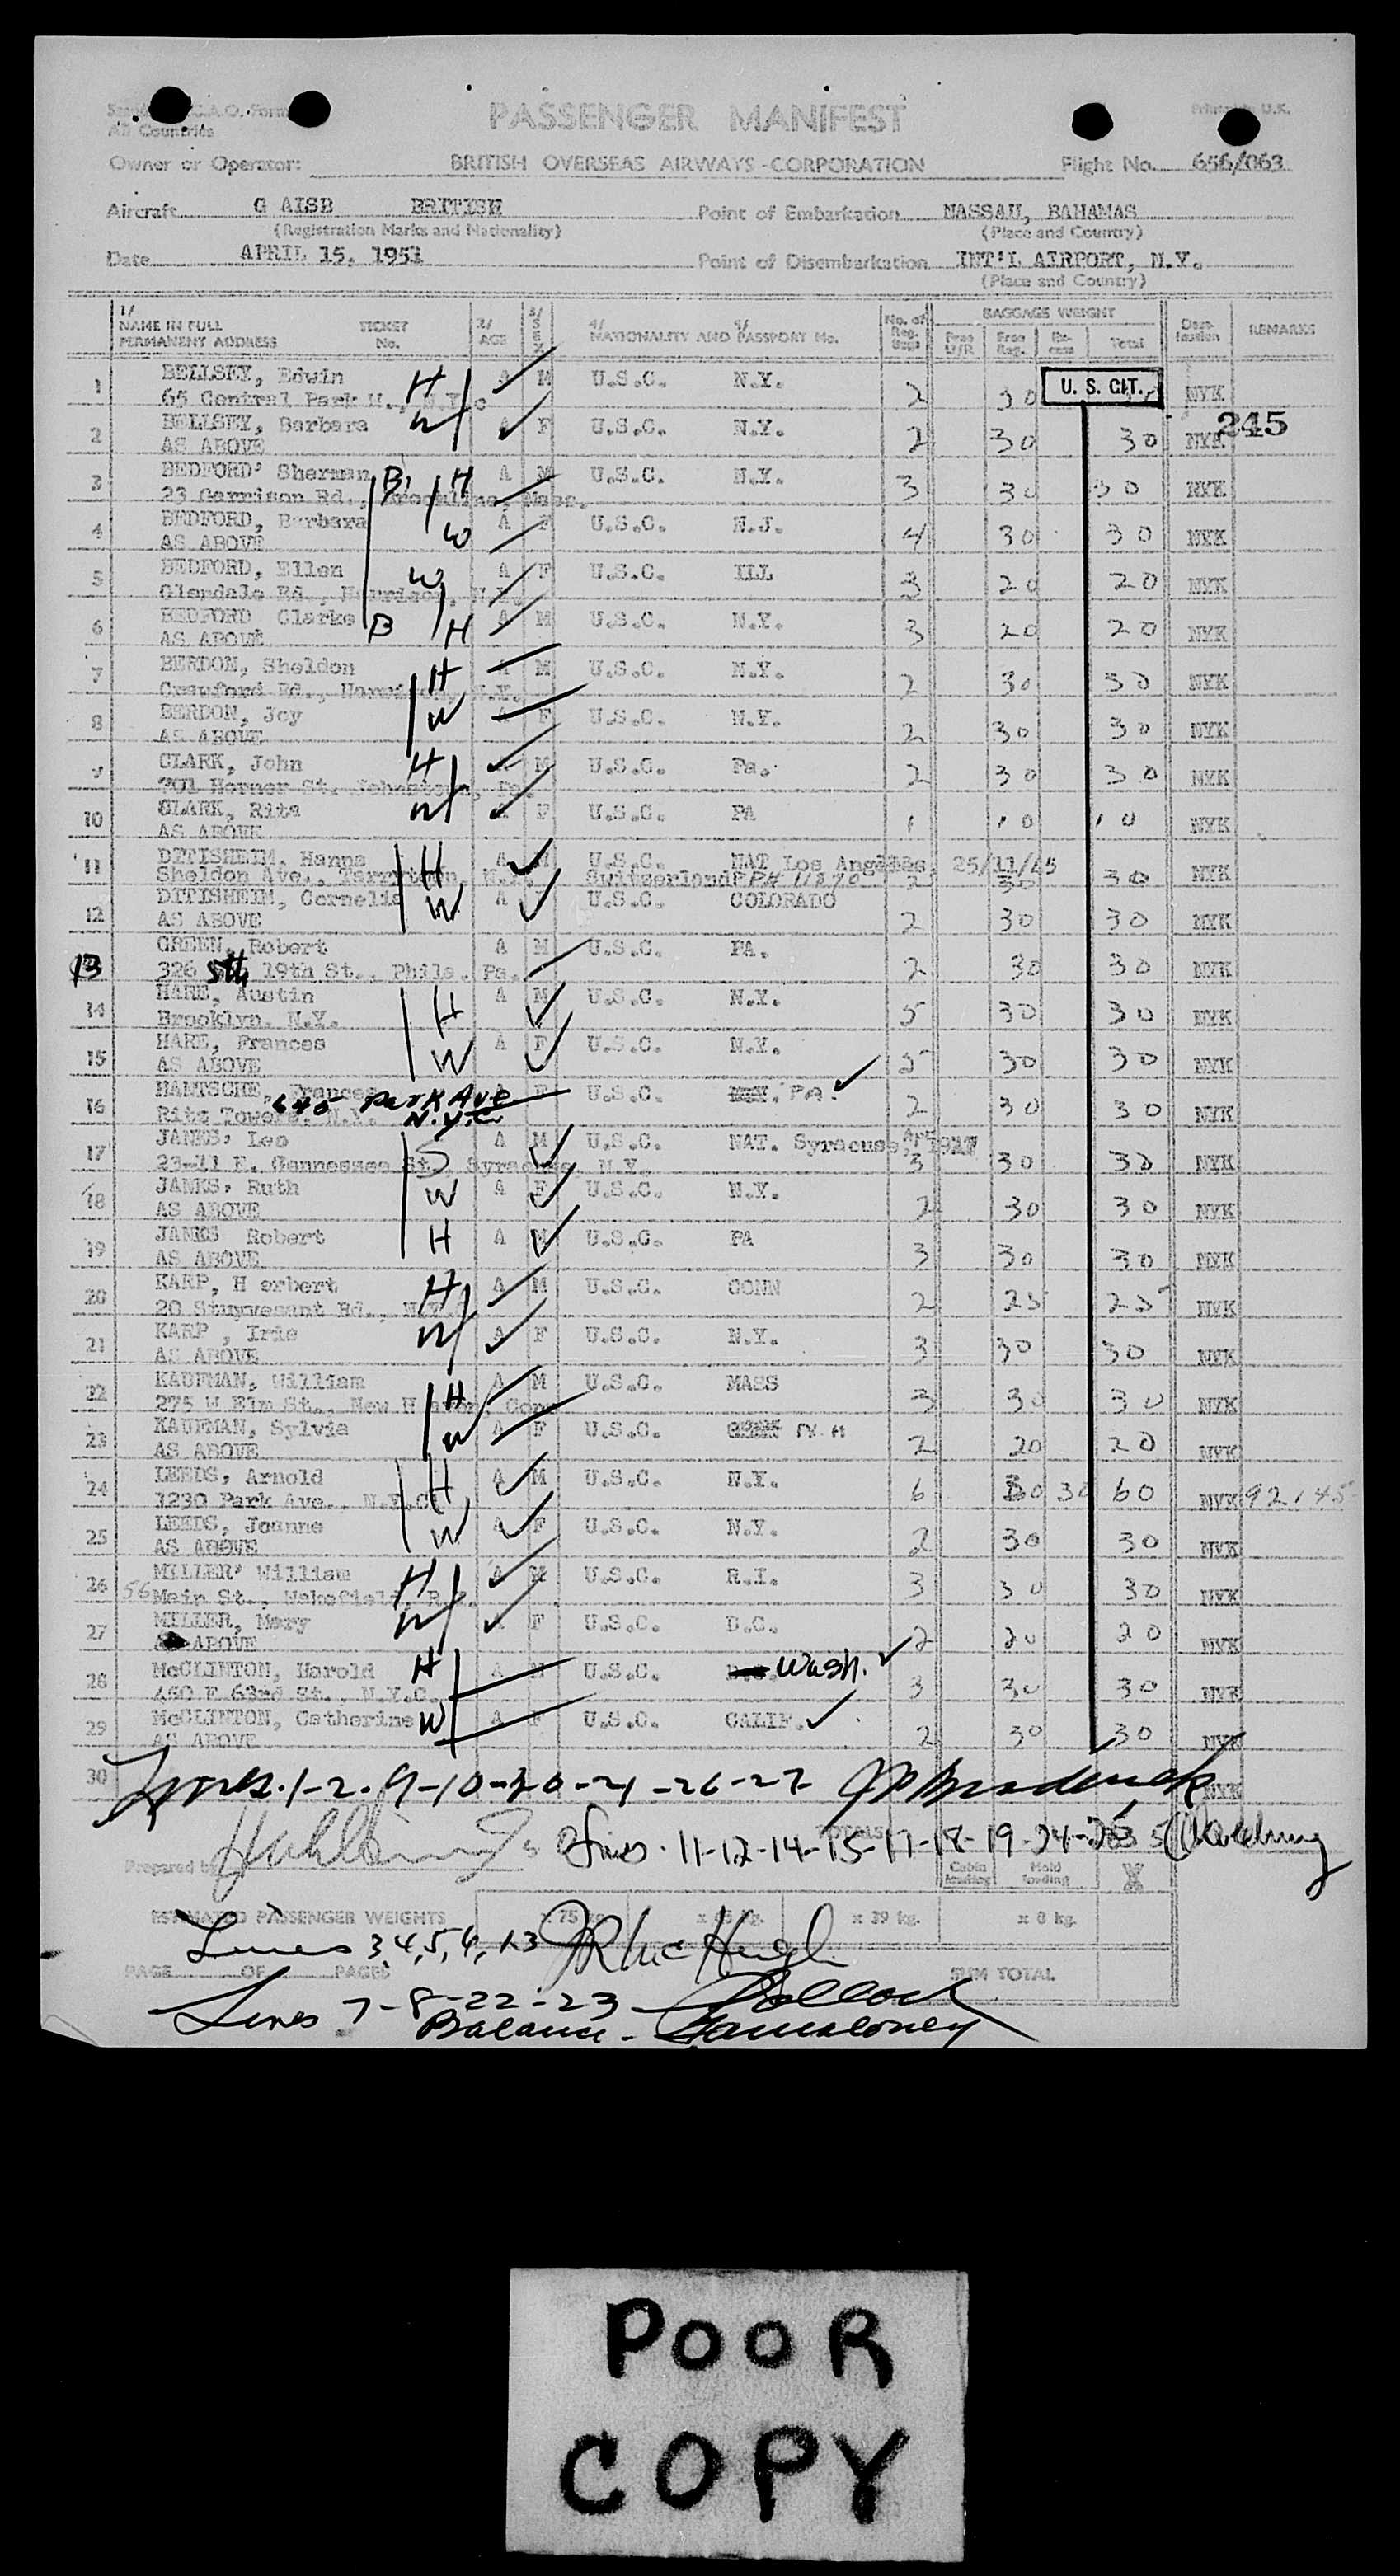 All Countries
PASSENGER MANIFEST
Owner or Operator: BRITISH OVERSEAS AIRWAYS CORPORATION Flight No. 656/063
Aircraft G AISB BRITISH Point of Embarkation NASSAU, BAHAMAS
(Registration Marks and Nationality) (Place and Country)
Date APRIL 15, 1951 Point of Disembarkation INT'L AIRPORT, N.Y.
(Place and Country)
1/ NAME IN FULL TICKET 2/ 3/ 4/ 5/ No. of BAGGAGE WEIGHT
PERMANENT ADDRESS No. AGE SEX NATIONALITY AND PASSPORT No. Reg. Bags Free Reg. Total Destination REMARKS
1 BELLSEY, Edwin H A M U.S.C. N.Y. 2 30 U. S. CIT. NYK
65 Central Park W., N.Y.C
2 BELLSEY, Barbara W F U.S.C. N.Y. 2 30 30 NYK 245
AS ABOVE
3 BEDFORD, Sherman B H A M U.S.C. N.Y. 3 30 30 NYK
23 Garrison Rd., Brookline, Mass.
4 BEDFORD, Barbara W A F U.S.C. N.J. 4 30 30 NYK
AS ABOVE
5 BEDFORD, Ellen W A F U.S.C. ILL 3 20 20 NYK
Glendale Rd., Harrison, N.Y.
6 BEDFORD Clarke B H A M U.S.C. N.Y. 3 20 20 NYK
AS ABOVE
7 BERDON, Sheldon H A M U.S.C. N.Y. 2 30 30 NYK
Crawford Rd., Harrison, N.Y.
8 BERDON, Joy W A F U.S.C. N.Y. 2 30 30 NYK
AS ABOVE
9 CLARK, John H M U.S.C. Pa. 2 30 30 NYK
701 Horner St. Johnstown, Pa.
10 CLARK, Rita W F U.S.C. PA 1 10 10 NYK
AS ABOVE
11 DITISHEIM, Hanns H A M U.S.C. NAT Los Angeles, 25/11/45
Sheldon Ave., Tarrytown, N.Y. Switzerland PP# 11870 2 30 30 NYK
12 DITISHEIM, Cornelia W A F U.S.C. COLORADO 2 30 30 NYK
AS ABOVE
13 GREEN, Robert A M U.S.C. PA. 2 30 30 NYK
326 Sth 19th St., Phila. Pa.
14 HARE, Austin H A M U.S.C. N.Y. 5 30 30 NYK
Brooklyn, N.Y.
15 HARE, Frances W A F U.S.C. N.Y. 5 30 30 NYK
AS ABOVE
16 HANTSCHE, Frances A F U.S.C. PA. 2 30 30 NYK
Ritz Towers, N.Y. 640 Park Ave N.Y.C.
17 JANKS, Leo S A M U.S.C. NAT. Syracuse, 3 30 30 NYK
23-11 E. Gennessee St., Syracuse, N.Y.
18 JANKS, Ruth W A F U.S.C. N.Y. 2 30 30 NYK
AS ABOVE
19 JANKS Robert H A M U.S.C. PA 3 30 30 NYK
AS ABOVE
20 KARP, H erbert H A M U.S.C. CONN 2 25 25 NYK
20 Stuyvesant Rd., N.Y.C
21 KARP , Iris W A F U.S.C. N.Y. 3 30 30 NYK
AS ABOVE
22 KAUFMAN, William H A M U.S.C. MASS 3 30 30 NYK
275 W Elm St., New Haven, Conn
23 KAUFMAN, Sylvia W A F U.S.C. 2 20 20 NYK
AS ABOVE
24 LEEDS, Arnold H A M U.S.C. N.Y. 6 30 30 60 NYK 92145
1230 Park Ave., N.Y.C.
25 LEEDS, Joanne W A F U.S.C. N.Y. 2 30 30 NYK
AS ABOVE
26 MILLER, William H A M U.S.C. R.I. 3 30 30 NYK
56 Main St., Wakefield, R.I.
27 MILLER, Mary W F U.S.C. D.C. 2 20 20 NYK
AS ABOVE
28 McCLINTON, Harold H A M U.S.C. Wash. 3 30 30 NYK
450 E 63rd St., N.Y.C.
29 McCLINTON, Catherine W A F U.S.C. CALIF. 2 30 30 NYK
AS ABOVE
30 Lines 1-2-9-10-20-21-26-27- NYK
Lines 11-12-14-15-17-18-19-24-25
Prepared by Cabin loading Hold loading
ESTIMATED PASSENGER WEIGHTS x 75 kg. x 39 kg. x 8 kg.
Lines 3,4,5,6,13 JR McHugh
PAGE OF PAGES SUM TOTAL
Lines 7-8-22-23 Pollock
Balance - Maloney
POOR
COPY